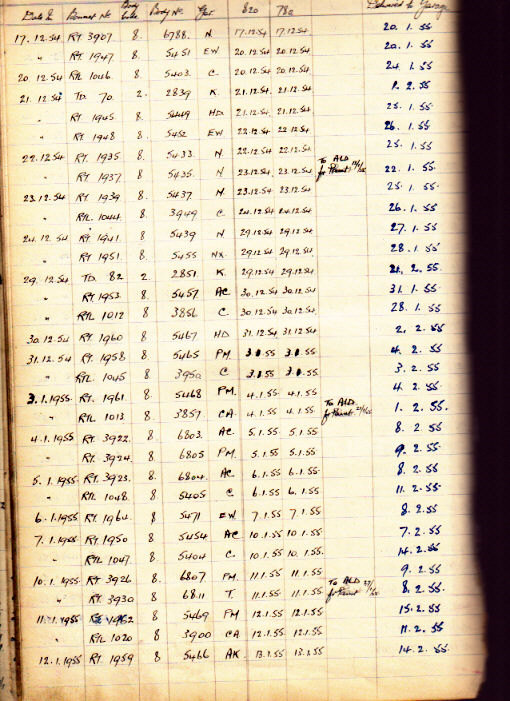 Date In Bonnet No Body Code Body No Gar. 820 78a Delivered to Garage
17.12.54 RT. 3907 8. 6788. N 17.12.54 17.12.54 20.1.55
" RT. 1947 8. 5451 EW 20.12.54 20.12.54 20.1.55
20.12.54 RTL 1046 8. 5403 C. 20.12.54 20.12.54 24.1.55
21.12.54 TD. 70 2. 2839 K. 21.12.54 21.12.54 1.2.55
" RT. 1945 8. 5449 HD. 21.12.54 21.12.54 25.1.55
" RT. 1948 8. 5452 EW 22.12.54 22.12.54 26.1.55
22.12.54 RT. 1935 8 5433 N 22.12.54 22.12.54 25.1.55
" RT. 1937 8 5435 N 23.12.54 23.12.54 To ALD for Paint 22.1.55
23.12.54 RT. 1939 8 5437 N 23.12.54 23.12.54 25.1.55
" RTL 1044 8 3949 C 24.12.54 24.12.54 26.1.55
24.12.54 RT. 1941 8 5439 N 29.12.54 29.12.54 27.1.55
" RT. 1951 8. 5455 NX. 29.12.54 29.12.54 28.1.55
29.12.54 TD. 82 2 2851 K. 29.12.54 29.12.54 2.55
" RT. 1953 8. 5457 AC 30.12.54 30.12.54 31.1.55
" RTL 1012 8 3856 C 30.12.54 30.12.54 28.1.55
30.12.54 RT. 1960 8 5467 HD 31.12.54 31.12.54 2.2.55
31.12.54 RT. 1958 8 5465 PM. 3.1.55 3.1.55 4.2.55
" RTL 1045 8 3950 C 3.1.55 3.1.55 3.2.55
3.1.1955 RT. 1961 8 5468 PM. 4.1.55 4.1.55 4.2.55
" RTL 1013 8 3857 CA. 4.1.55 4.1.55 To ALD for Paint 1.2.55.
4.1.1955 RT. 3922 8 6803 AC. 5.1.55 5.1.55 8.2.55
" RT. 3924 8. 6805 PM. 5.1.55 5.1.55 9.2.55
5.1.1955 RT. 3923 8. 6804 AC 6.1.55 6.1.55 8.2.55
" RTL 1048 8 5405 C 6.1.55 6.1.55 11.2.55
6.1.1955 RT. 1964 8 5471 EW 7.1.55 7.1.55 8.2.55
7.1.1955 RT. 1950 8 5454 AC 10.1.55 10.1.55 7.2.55
" RTL 1047 8. 5404 C. 10.1.55 10.1.55 14.2.55
10.1.1955 RT. 3926 8. 6807 PM. 11.1.55 11.1.55 9.2.55
" RT. 3930 8 6811 T. 11.1.55 11.1.55 To ALD for Paint 8.2.55
11.1.1955 1962 8 5469 PM 12.1.55 12.1.55 15.2.55
" RTL 1020 8 3900 CA 12.1.55 12.1.55 11.2.55
12.1.1955 RT. 1959 8 5466 AK. 13.1.55 13.1.55 14.2.55